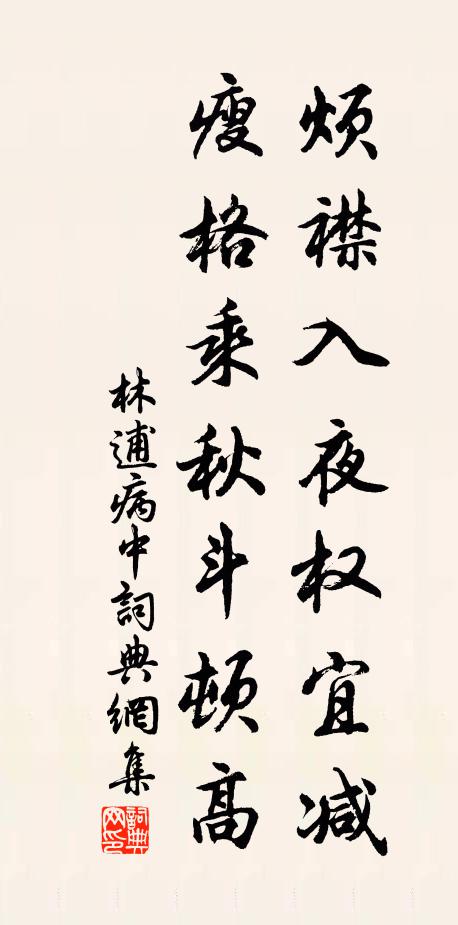 烦襟入夜权宜减
瘦格乘秋斗顿高
林逋病中詞典網集
詞典网印